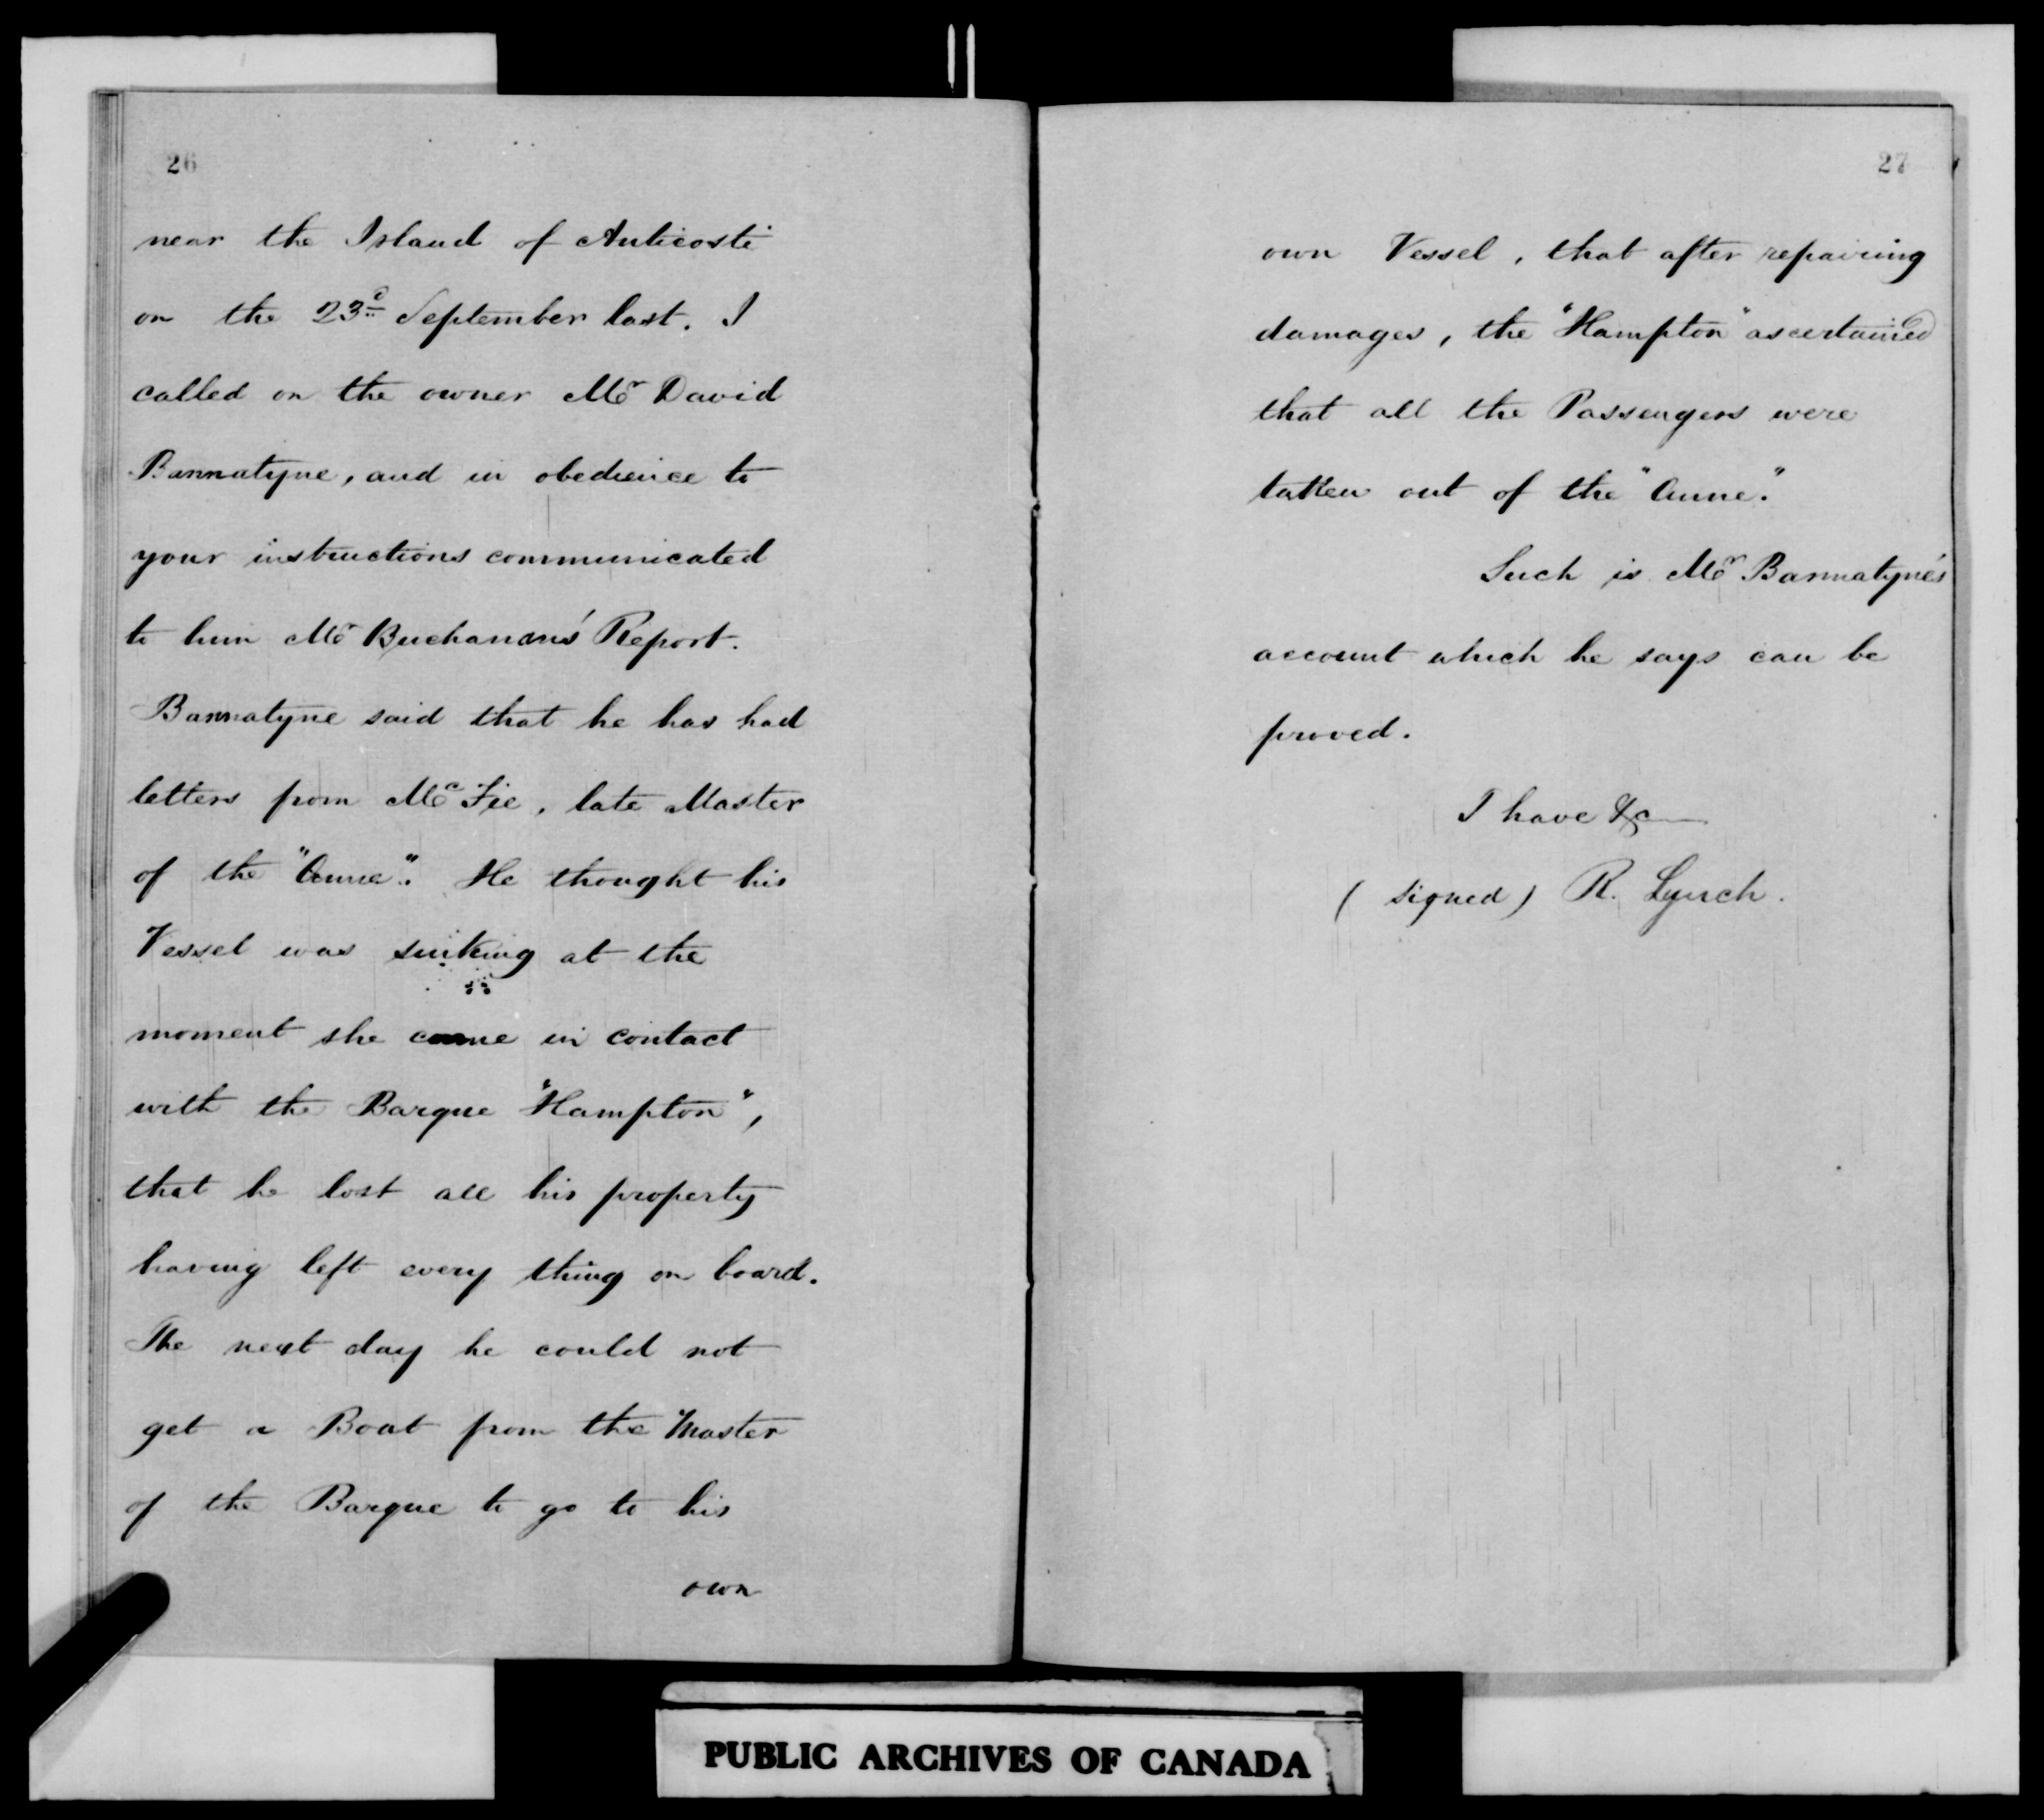 26
near the Island of Anticosti
on the 23d September last. I
called on the owner Mr David
Bannatyne, and in obedience to
your instructions communicated
to him Mr Buchanan's Report.
Bannatyne said that he has had
letters from McFie, late Master
of the "Anne". He thought his
Vessel was sinking at the
moment she came in contact
with the Barque "Hampton",
that he lost all his property
having left every thing on board.
The next day he could not
get a Boat from the Master
of the Barque to go to his
own
27
own Vessel, that after repairing
damages, the "Hampton" ascertained
that all the Passengers were
taken out of the "Anne".
Such is Mr Bannatyne's
account which he says can be
proved.
I have &c
(signed) R. Lynch.
PUBLIC ARCHIVES OF CANADA